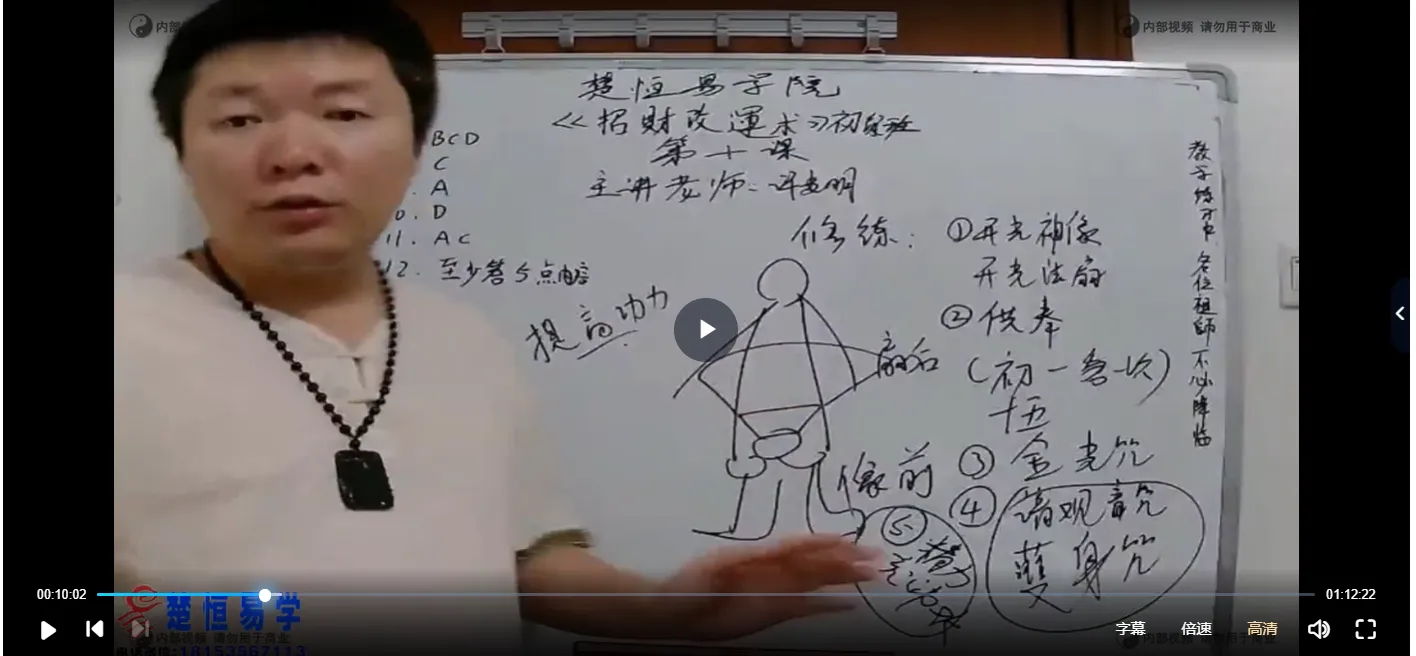 内部
内部视频 请勿用于商业
楚恒易学院
《招财改運术》初级班
第十课
主讲老师:许老明
BCD
C
A
10. D
11. AC
12. 至少答5点内容
提高功力
修练:
①开光神像
开光法扇
②供奉
(初一各一次)
十五
扇后
像前
③ 金光咒
④ 请观音咒
護身咒
⑤
教学练习中 各位祖師不必降临
00:10:02
01:12:22
楚恒易学
内部视频 请勿用于商业
:18153567113
字幕
倍速
高清